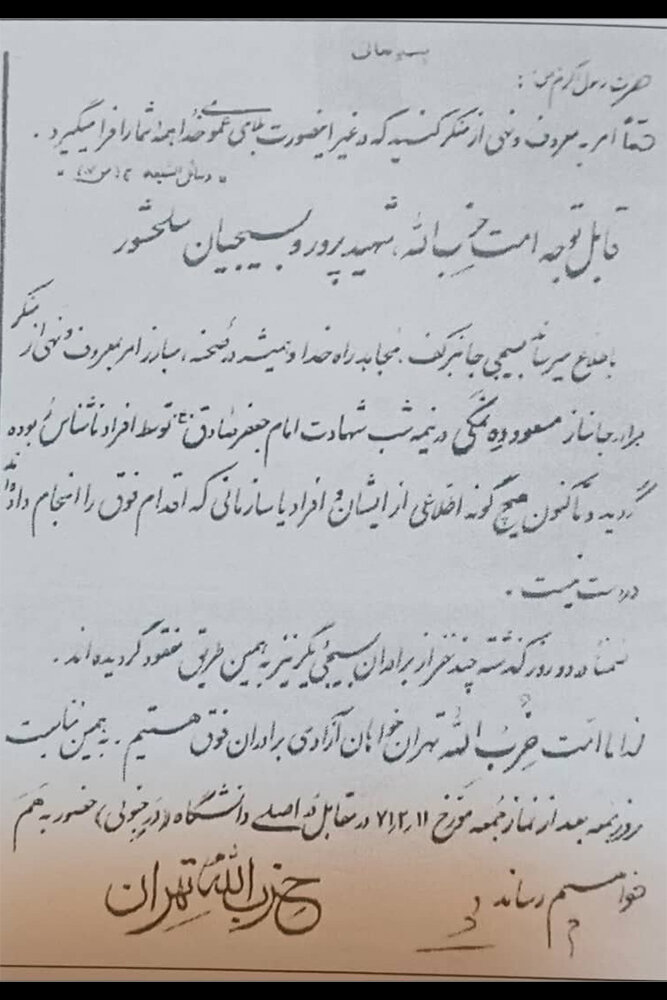 بسمه تعالی
حضرت رسول اکرم (ص) :
حتماً امر به معروف و نهی از منکر کنید که در غیر اینصورت بلای عمومی خدا همه شما را فرا میگیرد .
" وسائل الشیعه ج
قابل توجه امت حزب الله ، شهید پرور و بسیجیان سلحشور
باطلاع میرساند بسیجی جانبرکف ، مجاهد راه خدا و همیشه در صحنه ، مبارز امر بمعروف و نهی از منکر
برادر جانباز مسعود ده نمکی در نیمه شب شهادت امام جعفر صادق (ع) توسط افراد ناشناس ربوده
گردید و تاکنون هیچ گونه اطلاعی از ایشان و افراد یا سازمانی که اقدام فوق را انجام داده اند
در دست نیست .
ضمناً در دو روز گذشته چند نفر از برادران بسیجی دیگر نیز به همین طریق مفقود گردیده اند .
لذا ما امت حزب الله تهران خواهان آزادی برادران فوق هستیم . به همین مناسبت
روز جمعه بعد از نماز جمعه مورخ ۷۱,۲,۱۱ در مقابل در اصلی دانشگاه (در جنوبی) حضور به هم
خواهیم رساند
حزب الله تهران